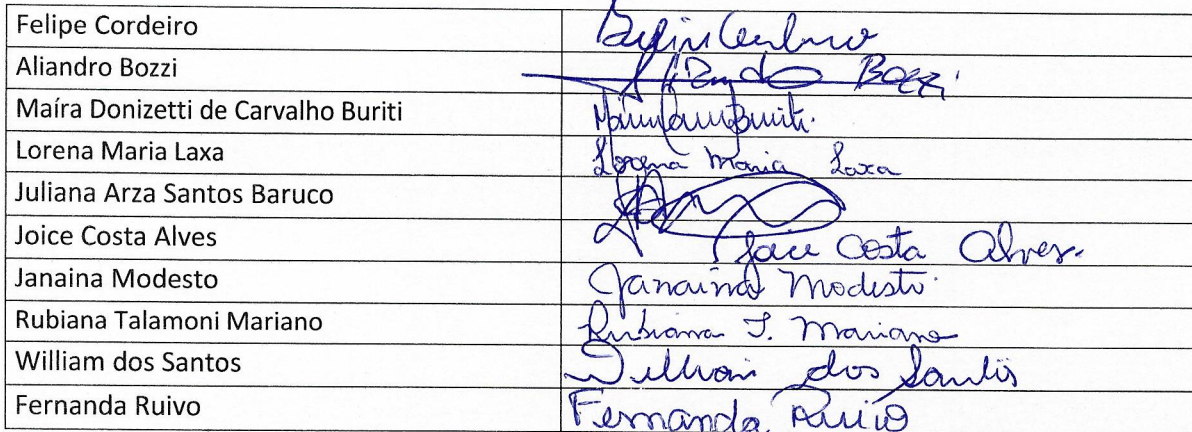 Felipe Cordeiro
Aliandro Bozzi Bozzi
Maíra Donizetti de Carvalho Buriti
Lorena Maria Laxa Lorena Maria Laxa
Juliana Arza Santos Baruco
Joice Costa Alves Joice Costa Alves
Janaina Modesto Janaina Modesto
Rubiana Talamoni Mariano Rubiana T. Mariano
William dos Santos Willian dos Santos
Fernanda Ruivo Fernanda Ruivo